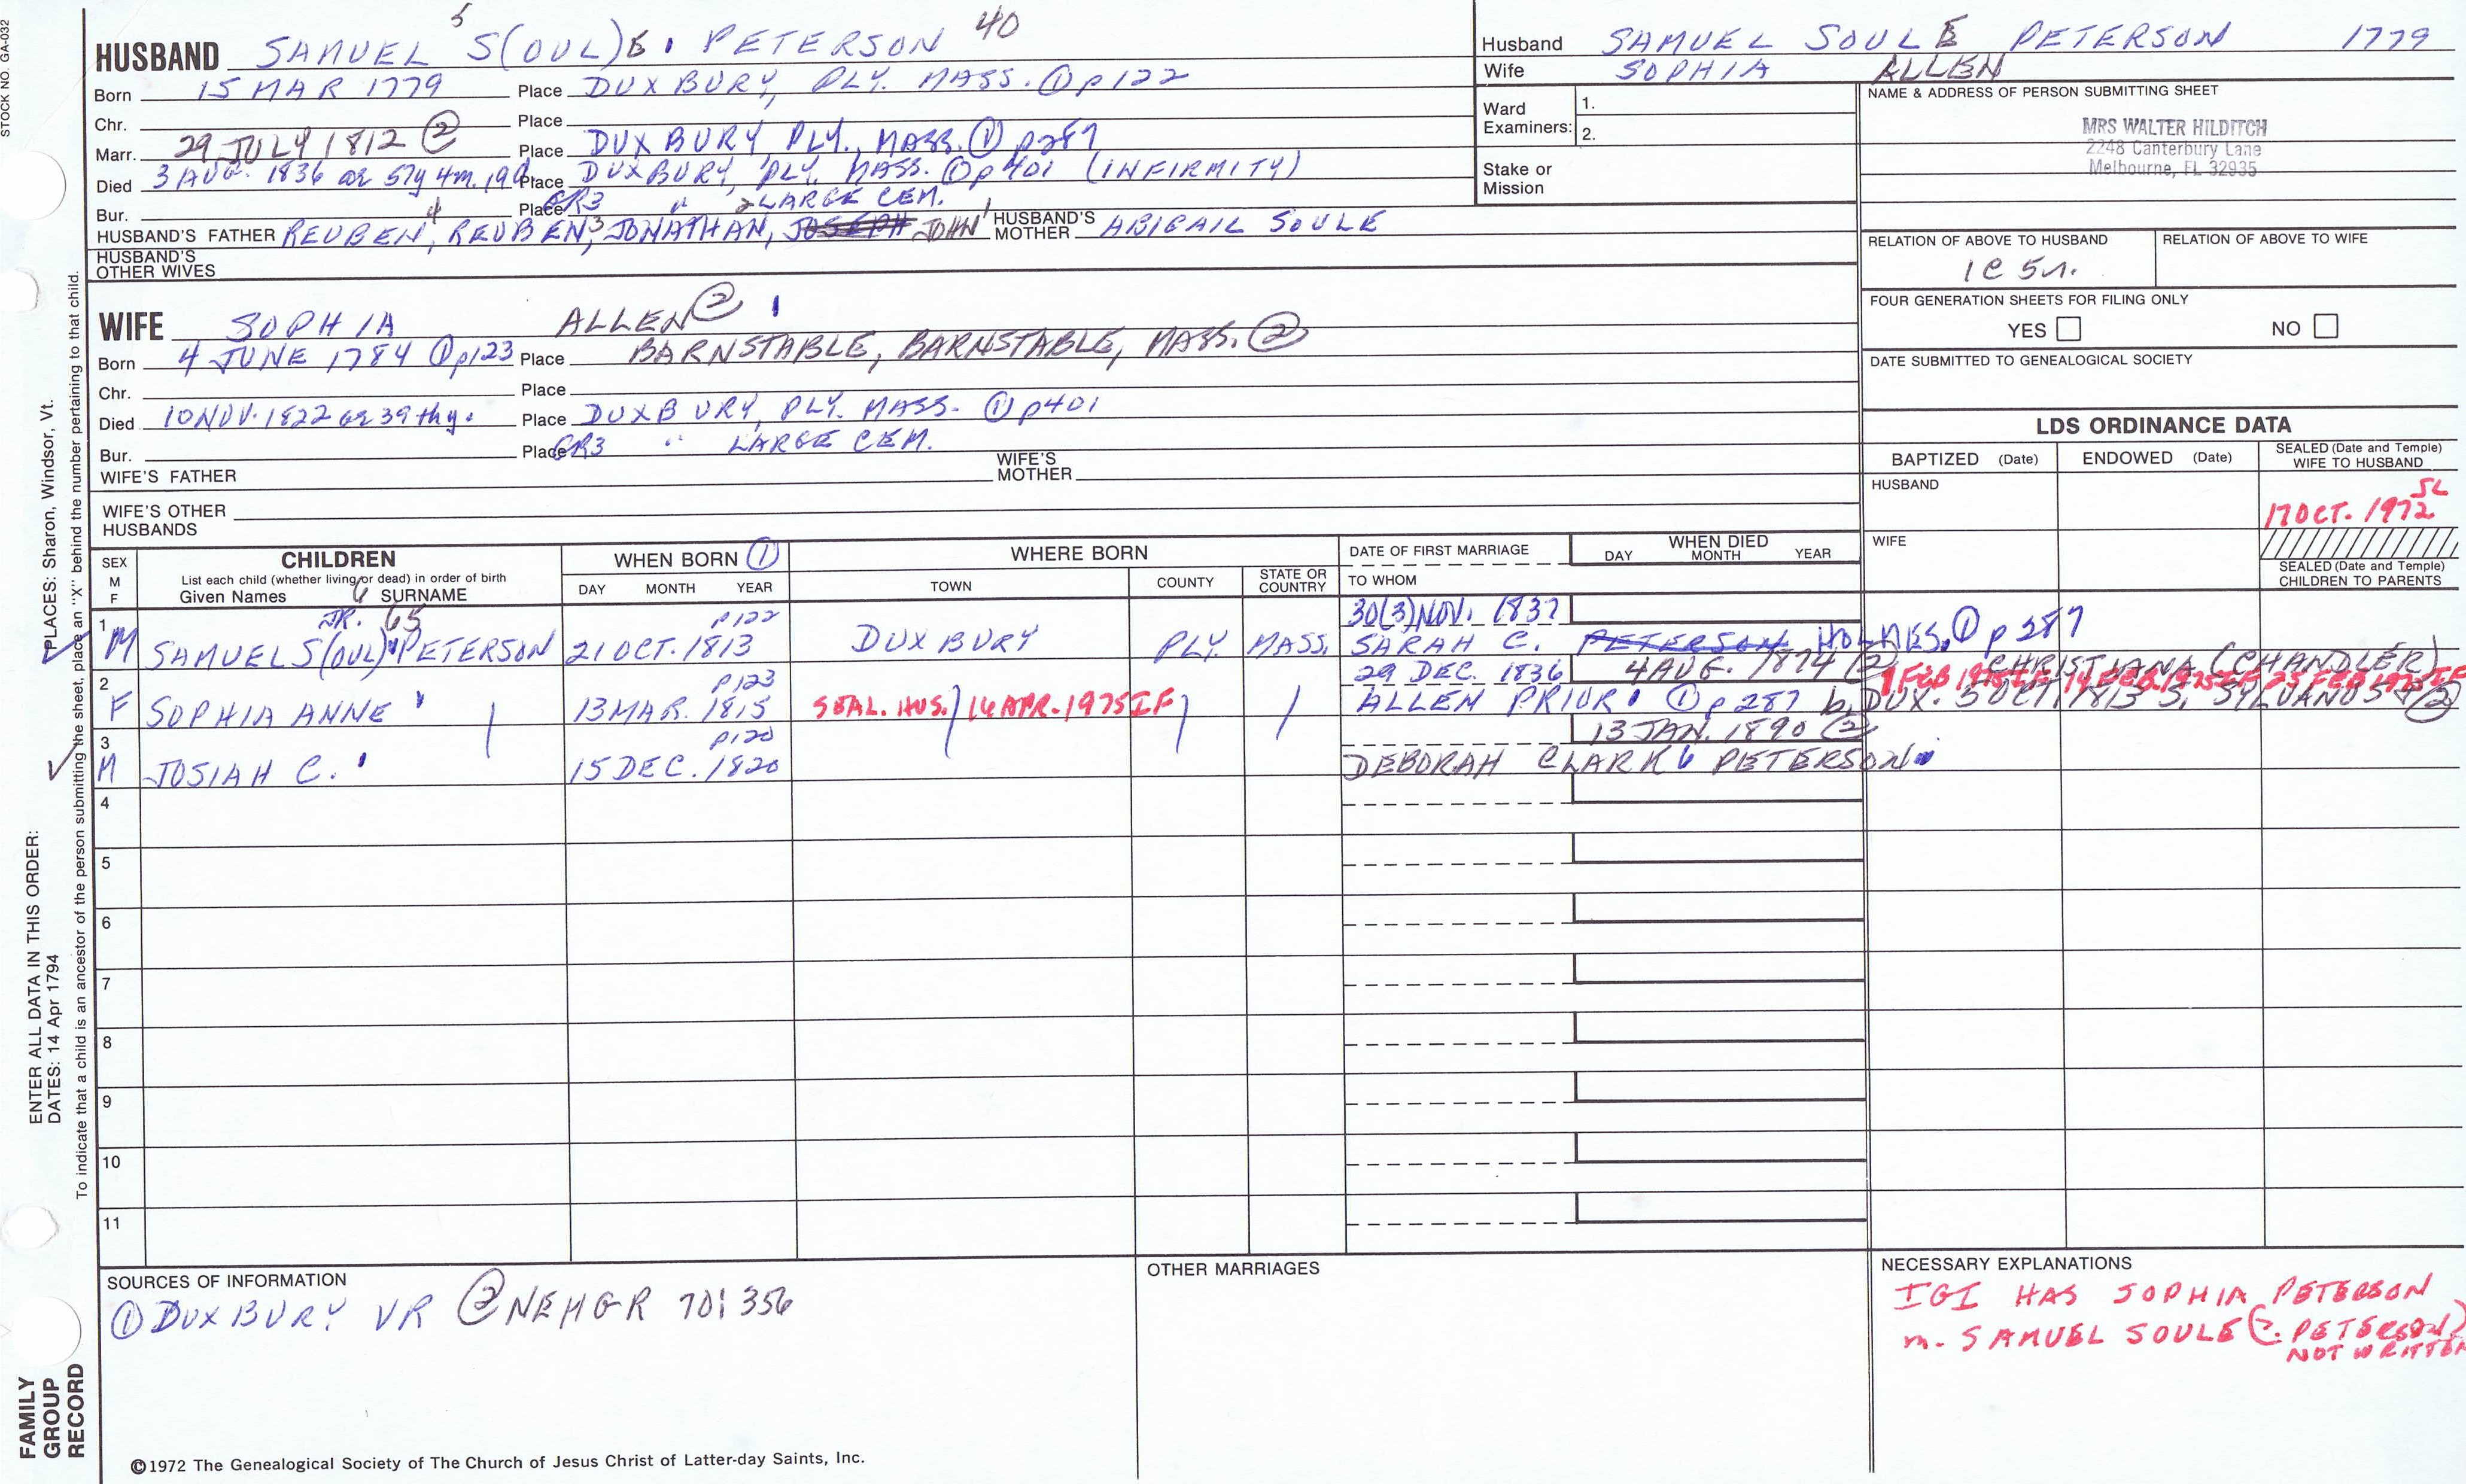 STOCK NO. GA-032
5 40
HUSBAND SAMUEL S(OUL)E. PETERSON
Born 15 MAR 1779 Place DUXBURY, PLY. MASS. ① p122
Chr. Place
Marr. 29 JULY 1812 ② Place DUXBURY, PLY., MASS. ① p287
Died 3 AUG. 1836 ae 57y 4m. 19d. Place DUXBURY, PLY. MASS. ① p401 (INFIRMITY)
Bur. Place GR3 " LARGE CEM.
HUSBAND'S FATHER REUBEN4, REUBEN3, JONATHAN2, JOSEPH JOHN1 HUSBAND'S MOTHER ABIGAIL SOULE
HUSBAND'S OTHER WIVES
WIFE SOPHIA ALLEN ②
Born 4 JUNE 1784 ① p123 Place BARNSTABLE, BARNSTABLE, MASS. ②
Chr. Place
Died 10 NOV. 1822 ae 39th y. Place DUXBURY, PLY. MASS. ① p401
Bur. Place GR3 " LARGE CEM.
WIFE'S FATHER WIFE'S MOTHER
WIFE'S OTHER HUSBANDS
Husband SAMUEL SOULE PETERSON 1779
Wife SOPHIA ALLEN
Ward Examiners: 1.
2.
Stake or Mission
NAME & ADDRESS OF PERSON SUBMITTING SHEET
MRS WALTER HILDITCH
2248 Canterbury Lane
Melbourne, FL 32935
RELATION OF ABOVE TO HUSBAND RELATION OF ABOVE TO WIFE
1C 5r.
FOUR GENERATION SHEETS FOR FILING ONLY
YES NO
DATE SUBMITTED TO GENEALOGICAL SOCIETY
LDS ORDINANCE DATA
BAPTIZED (Date) ENDOWED (Date) SEALED (Date and Temple) WIFE TO HUSBAND
HUSBAND
SL
17 OCT. 1972
WIFE
SEALED (Date and Temple) CHILDREN TO PARENTS
SEX M F
CHILDREN
List each child (whether living or dead) in order of birth
Given Names 6 SURNAME
WHEN BORN ①
DAY MONTH YEAR
WHERE BORN
TOWN COUNTY STATE OR COUNTRY
DATE OF FIRST MARRIAGE
TO WHOM
WHEN DIED
DAY MONTH YEAR
JR. 65 p122 30(3) NOV. 1837
1 M SAMUEL S(OUL) PETERSON 21 OCT. 1813 DUXBURY PLY. MASS. SARAH C. PETERSON HOLMES. ① p 287
p123 29 DEC. 1836 4 AUG. 1874 ② CHRISTIANA (CHANDLER)
1 FEB 1975 IF 14 FEB. 1975 IF 25 FEB 1975 IF
2 F SOPHIA ANNE 13 MAR. 1815 SEAL. HUS. 16 APR. 1975 IF ALLEN PRIOR ① p 287 b. DUX. 5 OCT. 1813 S. SYLVANUS & ②
p120 13 JAN. 1890 ②
3 M JOSIAH C. 15 DEC. 1820 DEBORAH CLARK6 PETERSON
4
5
6
7
8
9
10
11
SOURCES OF INFORMATION
① DUXBURY VR ② NEHGR 70:356
OTHER MARRIAGES
NECESSARY EXPLANATIONS
IGI HAS SOPHIA PETERSON
m. SAMUEL SOULE (?. PETERSON)
NOT WRITTEN
©1972 The Genealogical Society of The Church of Jesus Christ of Latter-day Saints, Inc.
FAMILY GROUP RECORD
ENTER ALL DATA IN THIS ORDER:
DATES: 14 Apr 1794
PLACES: Sharon, Windsor, Vt.
To indicate that a child is an ancestor of the person submitting the sheet, place an "X" behind the number pertaining to that child.